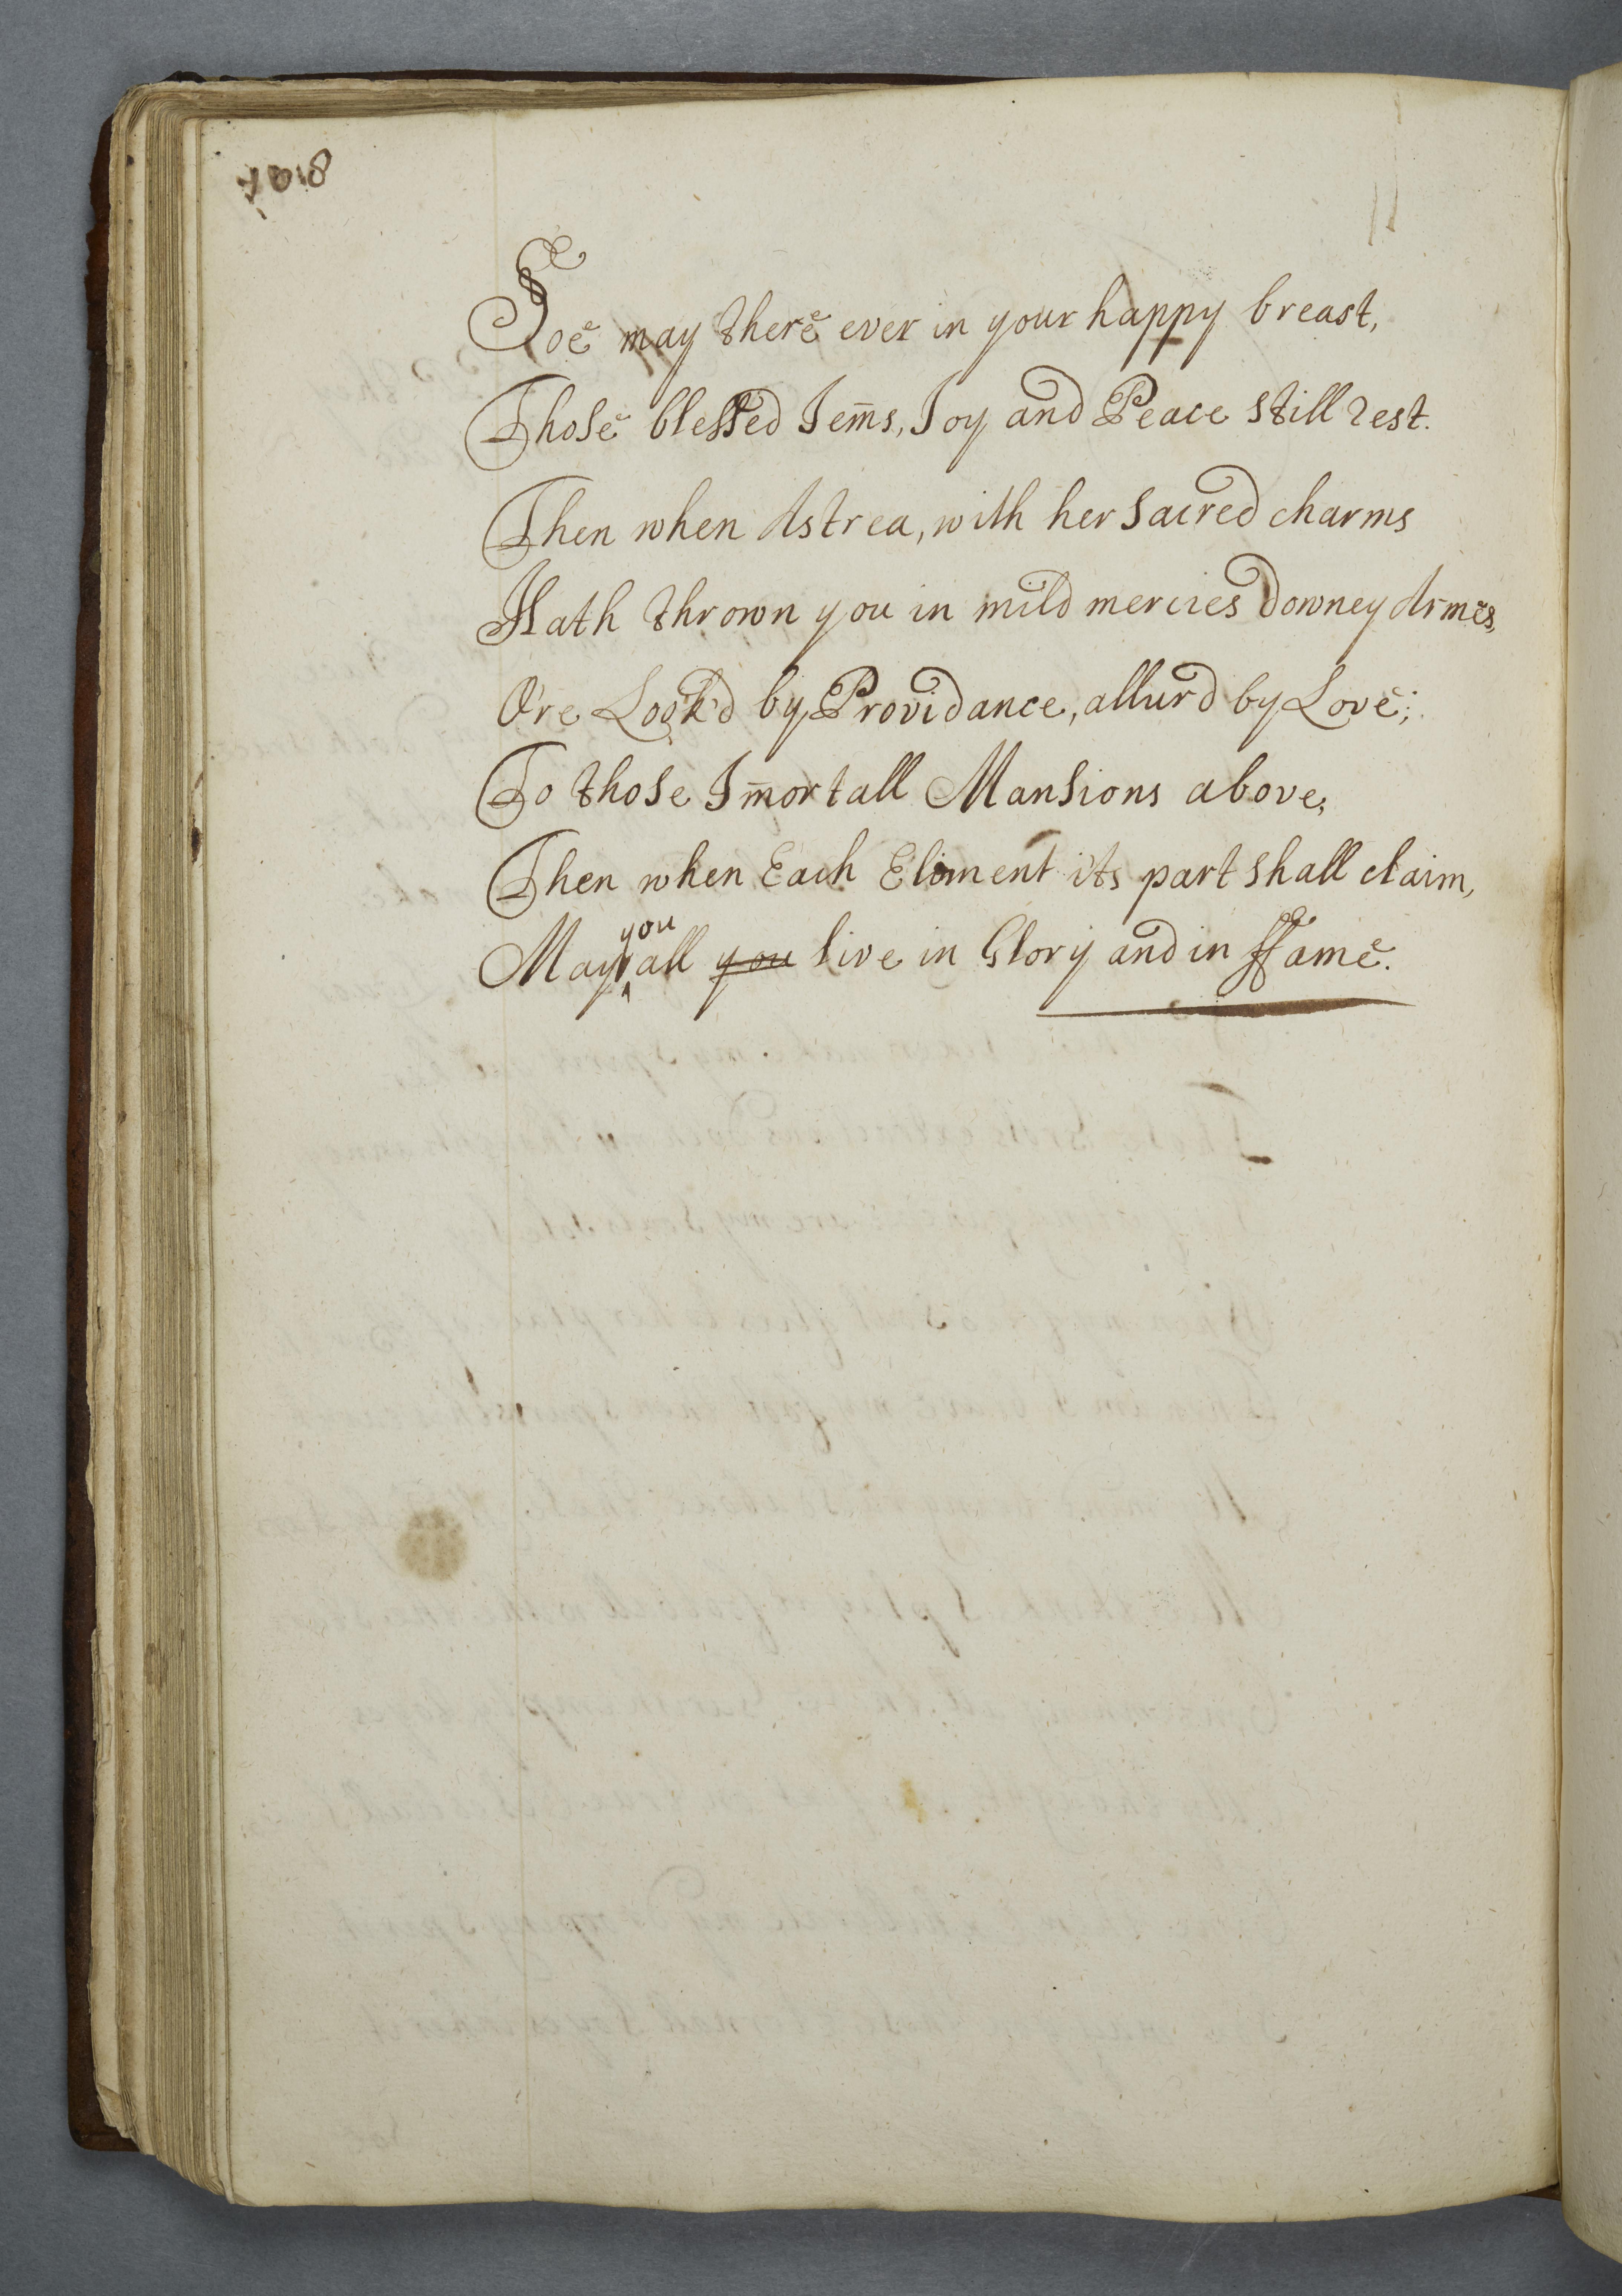 Soe may there ever in your happy breast,
Those blessed Jem̄s, Joy and Peace still rest.
Then when Astrea, with her sacred charms
Hath thrown you in mild mercies downey Armes,
O're Look'd by Providance, allur'd by Love;
To those Im̄ortall Mansions above,
Then when Each Eliment its part shall claim,
May you all you live in Glory and in ffame.